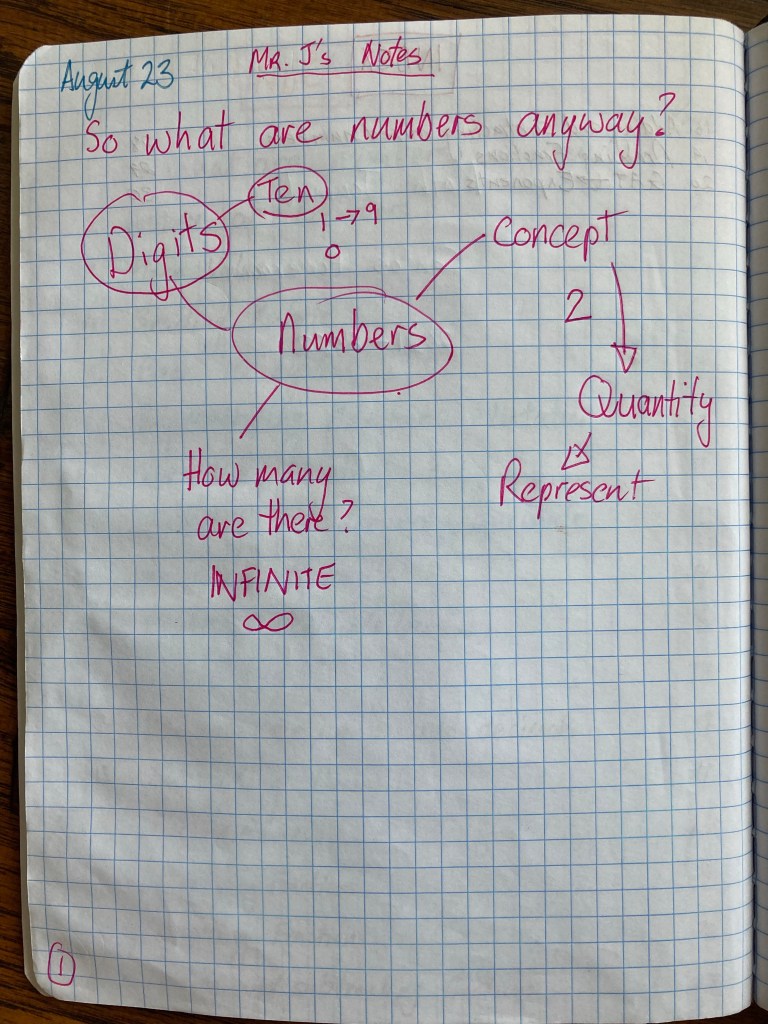 August 23
MR. J's Notes
So what are numbers anyway?
Ten
1 → 9
0
Digits
Concept
2
Numbers
Quantity
Represent
How many
are there?
INFINITE
∞
1